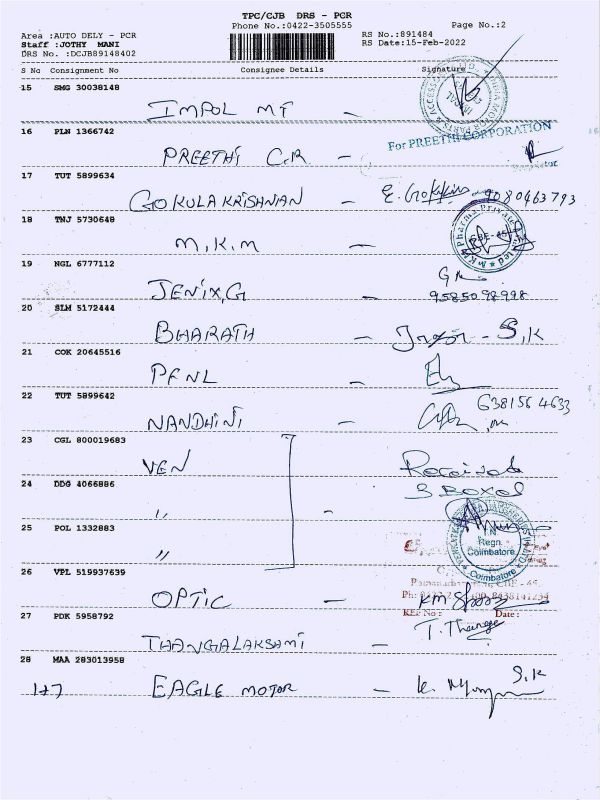 TPC/CJB DRS - PCR
Phone No.:0422-3505555
Page No.:2
Area :AUTO DELY - PCR
Staff :JOTHY MANI
DRS No. :DCJB89148402
RS No.:891484
RS Date:15-Feb-2022
S No Consignment No Consignee Details Signature
15 SMG 30038148
IMPOL MT –
16 PLN 1366742
For PREETHI CORPORATION
PREETHI C.R –
17 TUT 5899634
GOKULAKRISHNAN – 9080463793
18 TNJ 5730648
M.K.M –
19 NGL 6777112
JENIX.G – 9585098998
20 SLM 5172444
BHARATH – S.K
21 COK 20645516
PFNL –
22 TUT 5899642
NANDHINI – 6381564633
23 CGL 800019683
VEN Received
3 BOXES
24 DDG 4066886
" –
25 POL 1332883
"
Regn.
Coimbatore
Coimbatore
26 VPL 519937639
OPTIC – KM
Date :
27 PDK 5958792
THANGALAKSAMI – T. Thange
28 MAA 283013958
EAGLE MOTOR – S.K